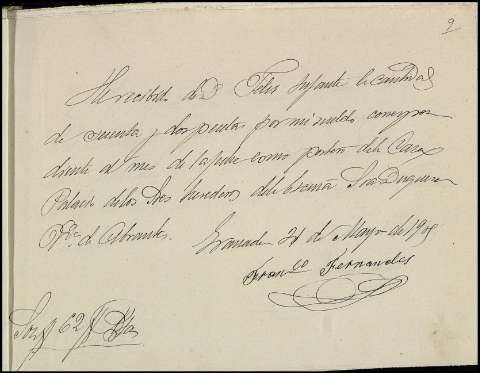 2
He recibido de Dn Felix Infante la cantidad
de sesenta y dos pesetas por mi sueldo correspon
diente al mes de la fecha como portero de la Casa
Palacio de los Sres herederos de la Excma Sra Duquesa
de Abrantes. Granada 31 de Mayo de 1905
Franco Fernandez
Son 62 Ptas